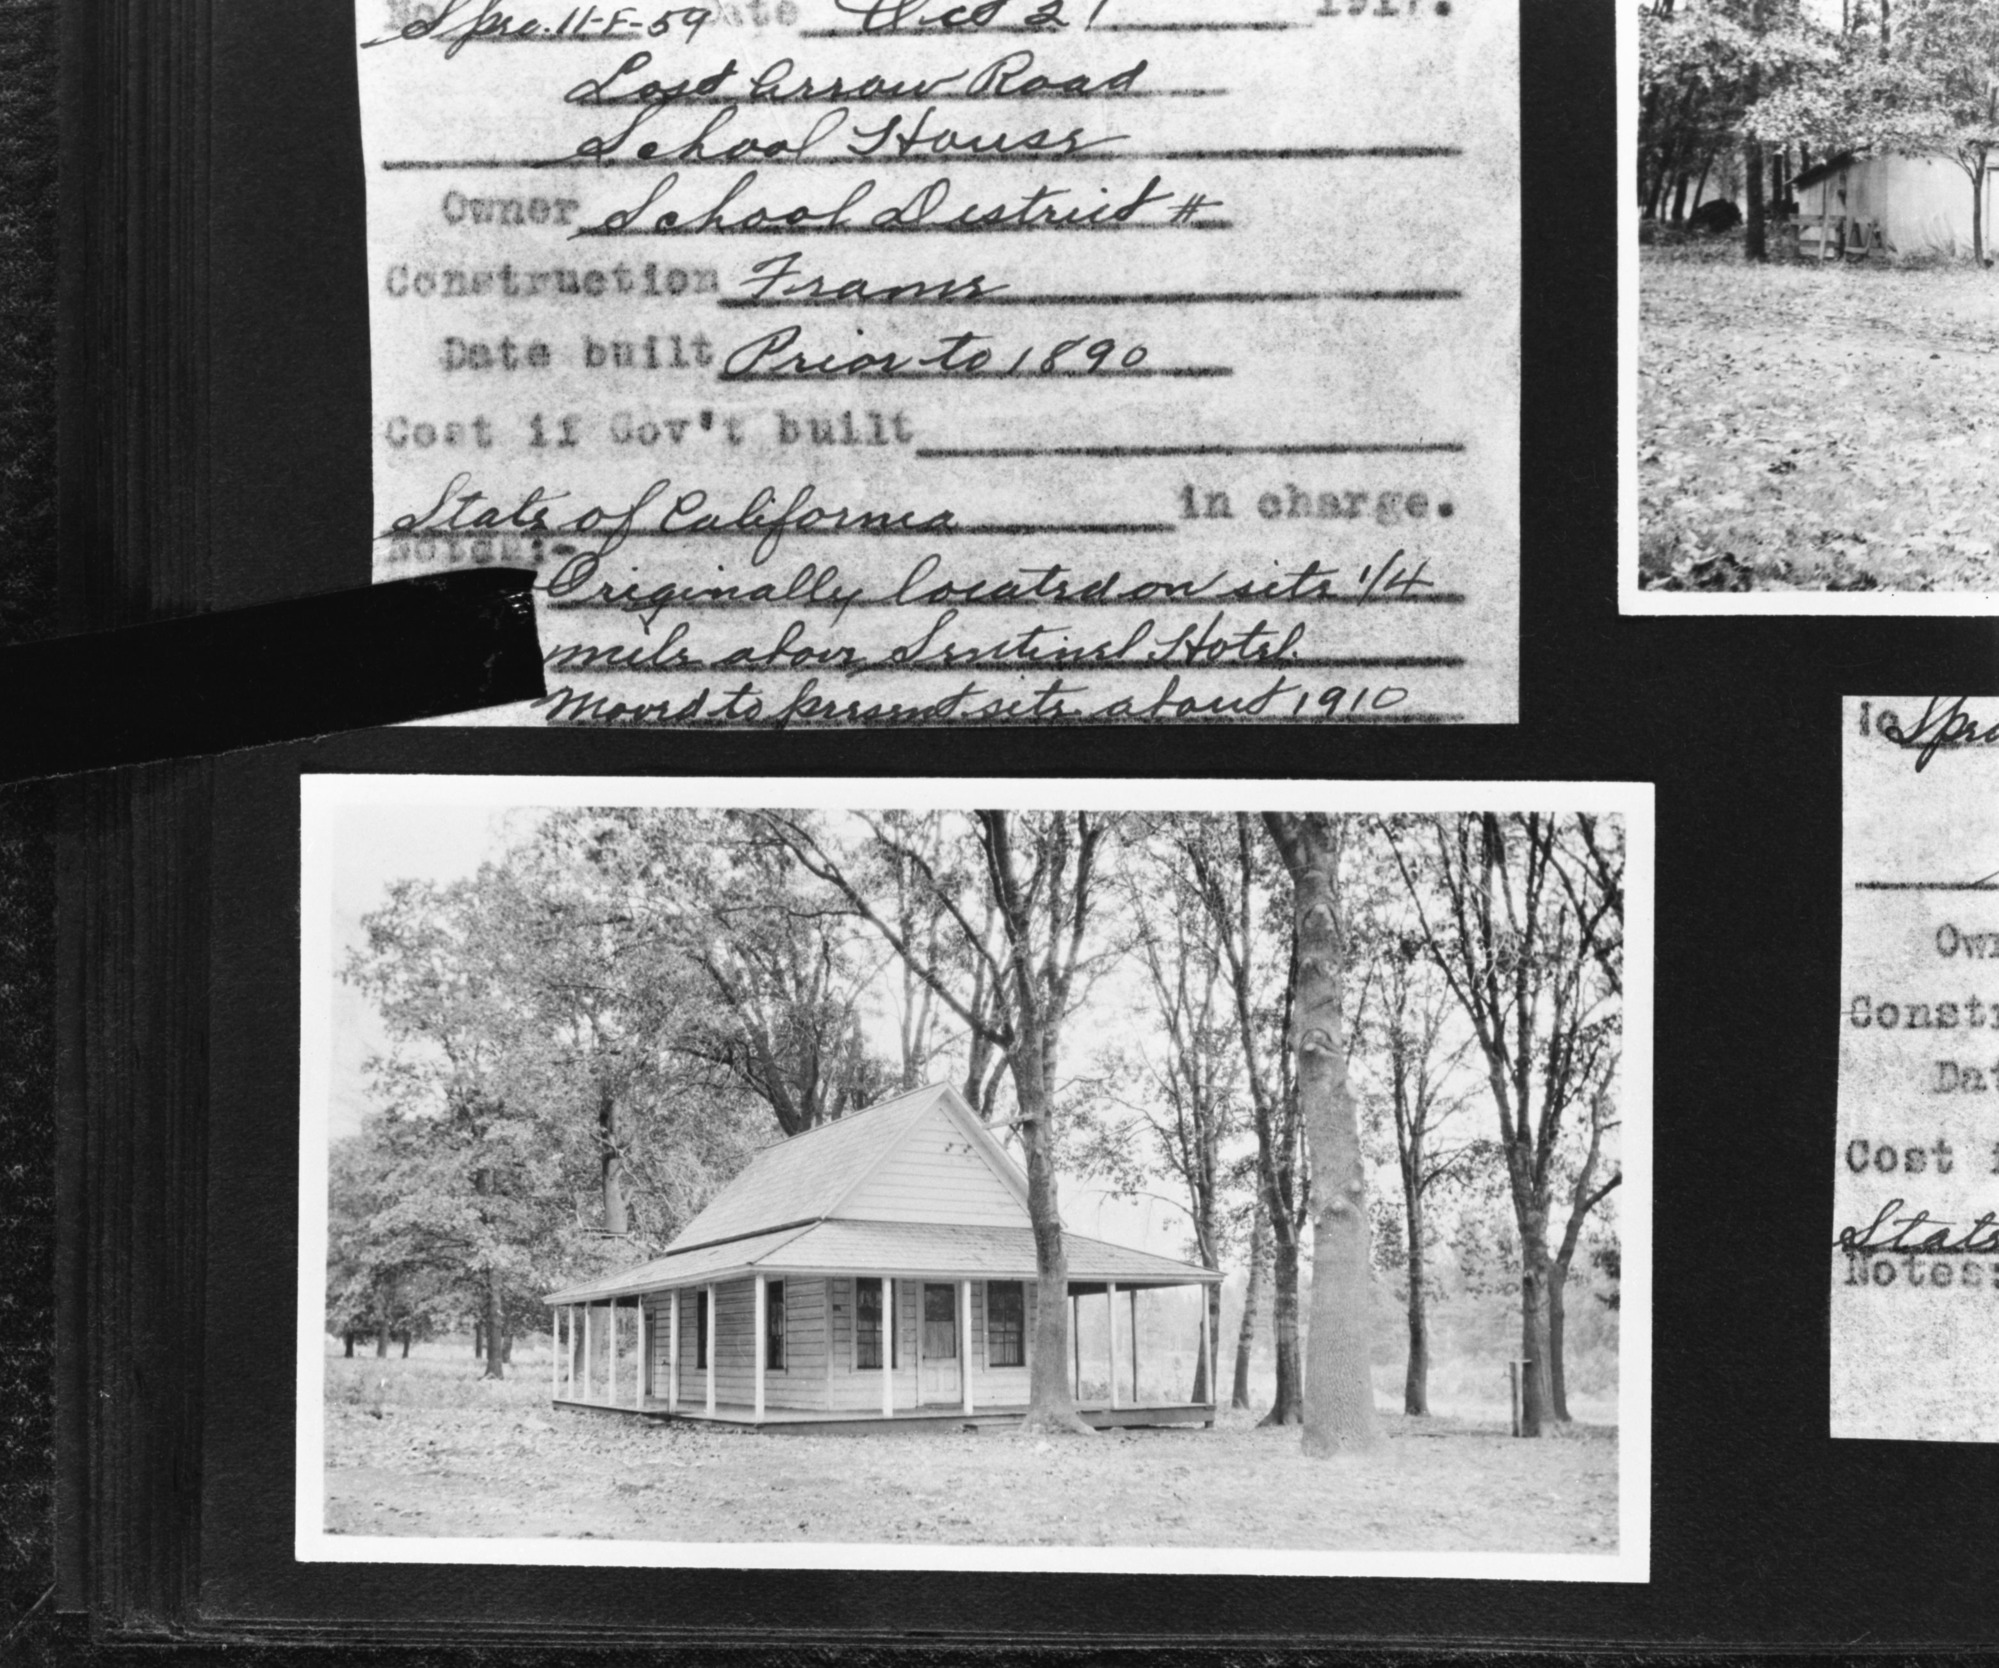 No Spro. 11-F-59 Date Oct 21 1917.
Lost Arrow Road
School House
Owner School District #
Construction Frame
Date built Prior to 1890
Cost if Gov't built
State of California in charge.
Notes:-
Originally located on site 1/4
mile above Sentinel Hotel.
Moved to present site about 1910
Spro
Own
Constr
Dat
Cost i
State
Notes: